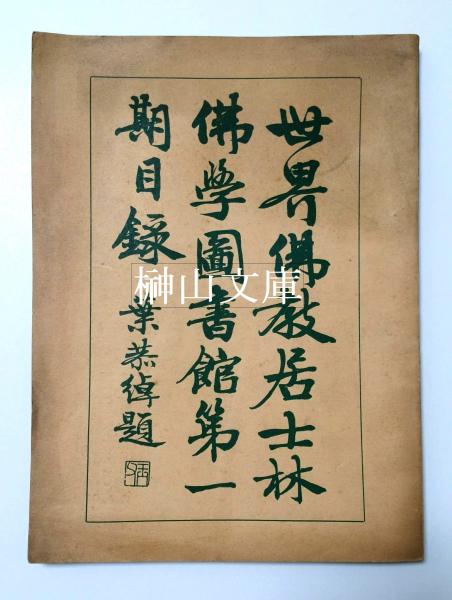 世界佛教居士林
佛學圖書館第一
期目録
葉恭綽題
榊山文庫